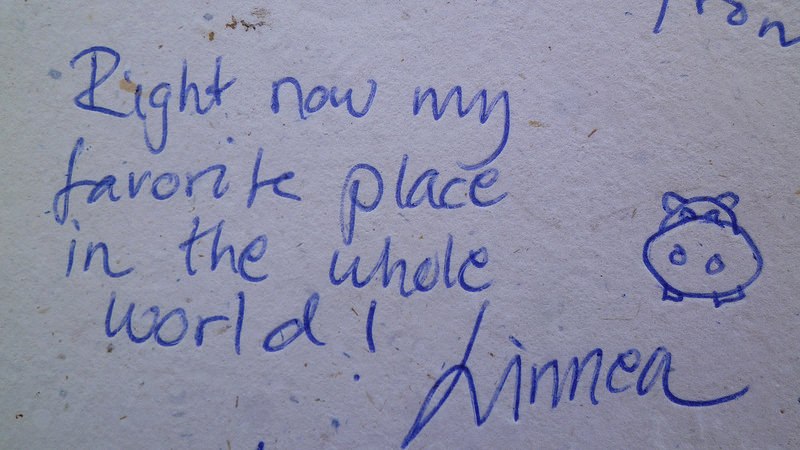 from
Right now my
favorite place
in the whole
world!
Linnea